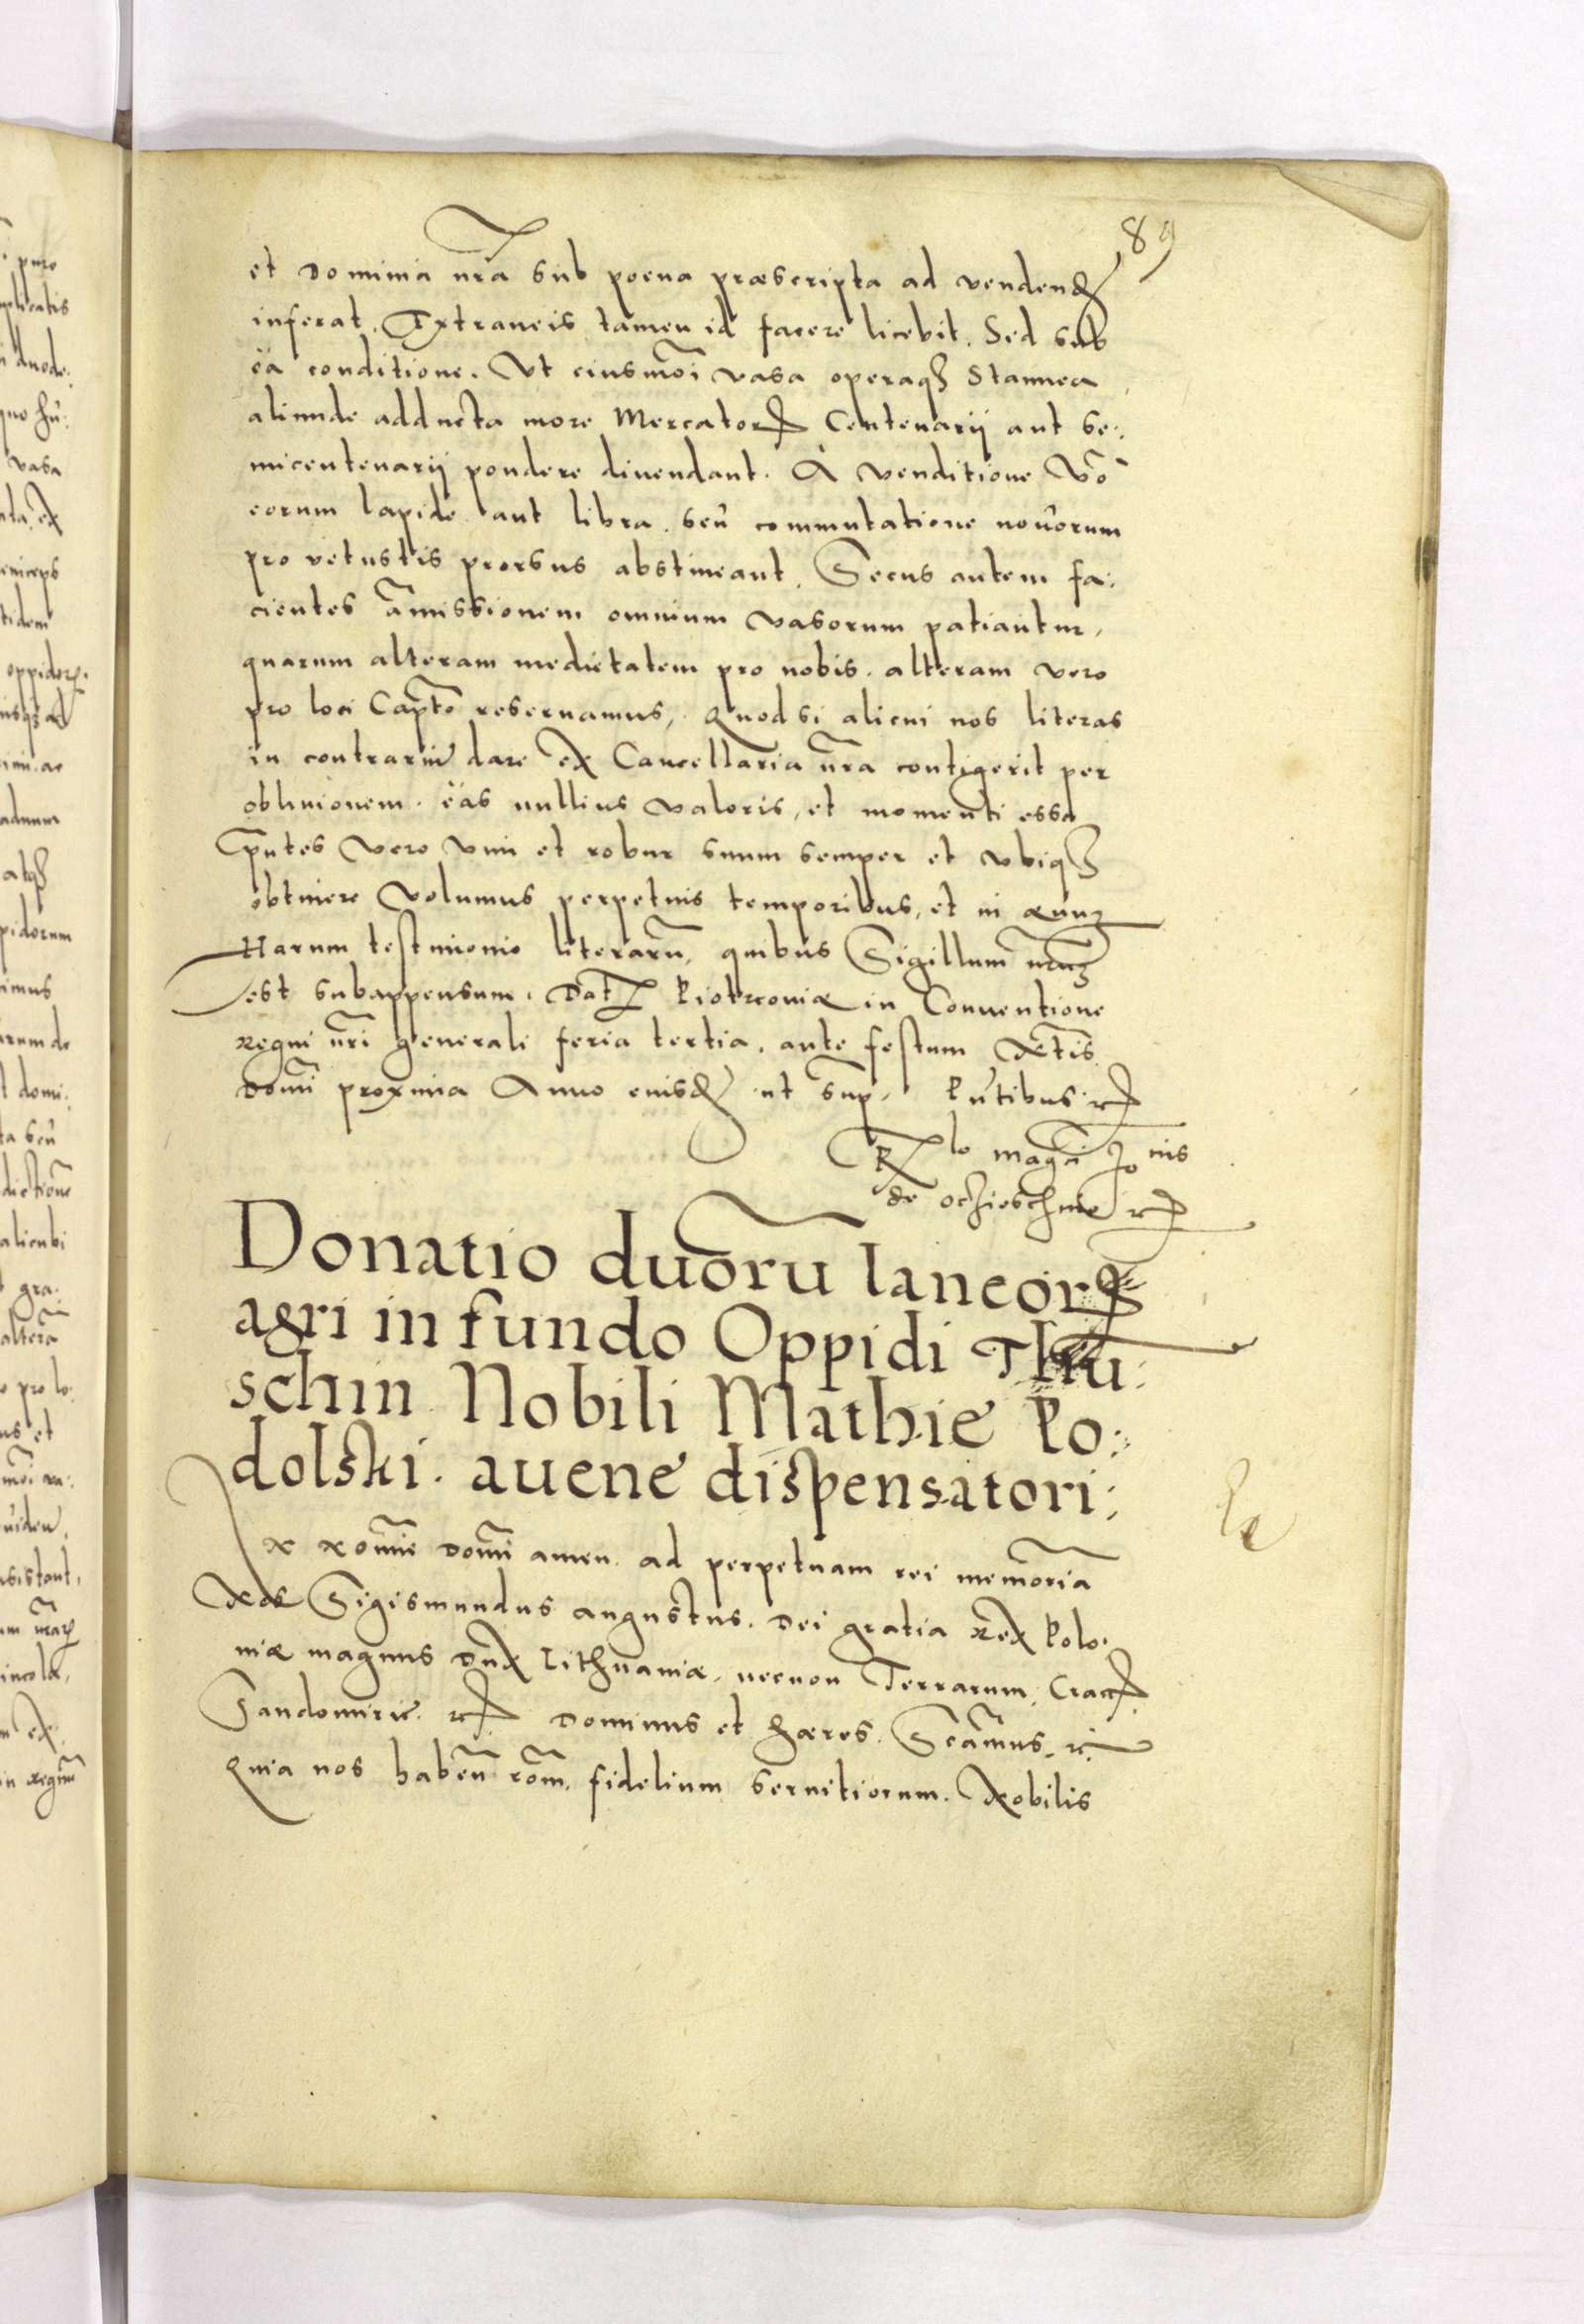 89
et dominia nr̃a sub poena præscripta ad vendend
inferat. Extraneis tamen id facere licebit. Sed sub
ea conditione. Vt eiusmõi vasa operaq Stannea
aliunde adducta more Mercator Centenarij aut se:
micentenarij pondere diuendant. A venditione Vo
eorum lapide aut libra. seu commutatione nouorum
pro vetustis prorsus abstineant. Secus autem fa:
cientes amissionem omnium vasorum patiantur,
quarum alteram medietatem pro nobis. alteram vero
pro loci Capto reseruamus, Quod si alicui nos literas
in contrariũ dare ex Cancellaria nr̃a contigerit per
obliuionem. eas nullius valoris, et momenti esse
Pñtes vero vim et robur suum semper et vbiq
obtinere volumus perpetuis temporibus, et in æuuz
Harum testimonio literarũ, quibus Sigillum nr̃uz
est subappensum. Dat Piotrcouiæ in Conuentione
regni nr̃i generali feria tertia. ante festum Natis
Domi proxima Anno eiusd ut sup. Pñtibus etc
Rlo magci Jonis
de oczieschino etc
Donatio duorũ laneor
agri in fundo Oppidi Thu:
schin Nobili Mathie Po:
dolski. avene dispensatori:
In Nomine Domi amen. ad perpetuam rei memoriã
Nos Sigismundus augustus. Dei gratia Rex Polo:
niæ magnus Dux Lithuaniæ, necnon Terrarum, Crac
Sandomirie. etc Dominus et hæres. Sc̃amus etc
Quia nos habeñ rõm. fidelium seruitiorum. Nobilis